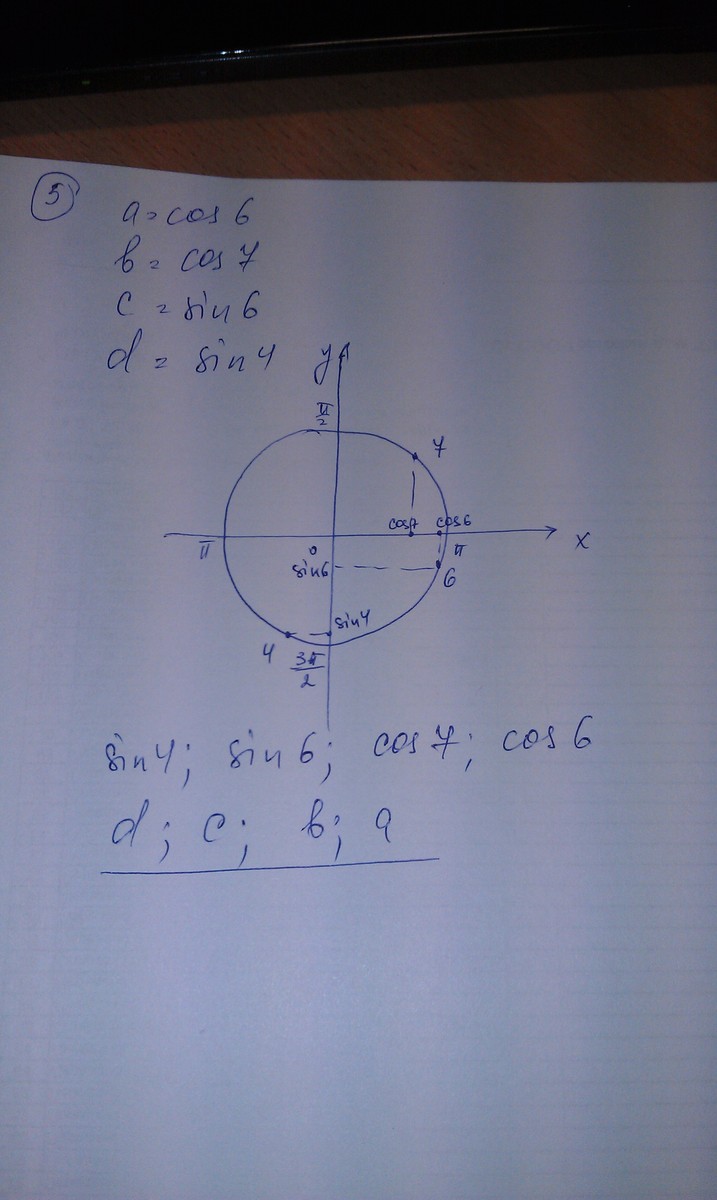 5
a = cos 6
b = cos 7
c = sin 6
d = sin 4
y
π/2
7
cos7 cos6
π 0 π x
sin6
6
sin4
4
3π/2
sin 4; sin 6; cos 7; cos 6
d; c; b; a